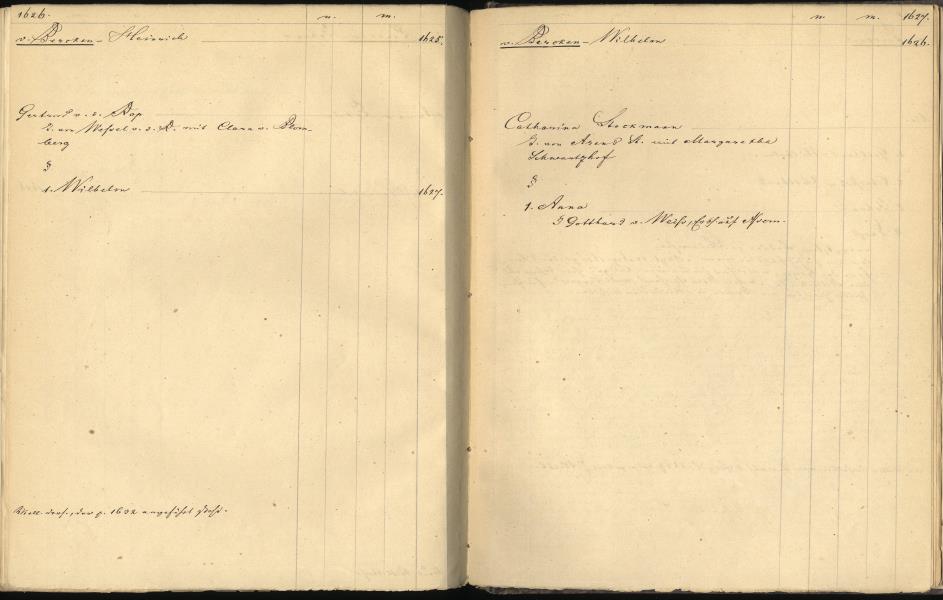 1626.
n. m.
v. Bercken - Heinrich 1625.
Gertrud v. d. Röp
T. von Wessel v. d. R. mit Clara v. Blom-
berg
§
1. Wilhelm 1627.
p. 1632 angeführt steht.
n. m. 1627.
v. Bercken - Wilhelm 1626.
Catharina Stockmann
T. von Arend St. mit Margaretha
Schwartzhof
§
1. Anna
Gotthard v. Weiss, auf